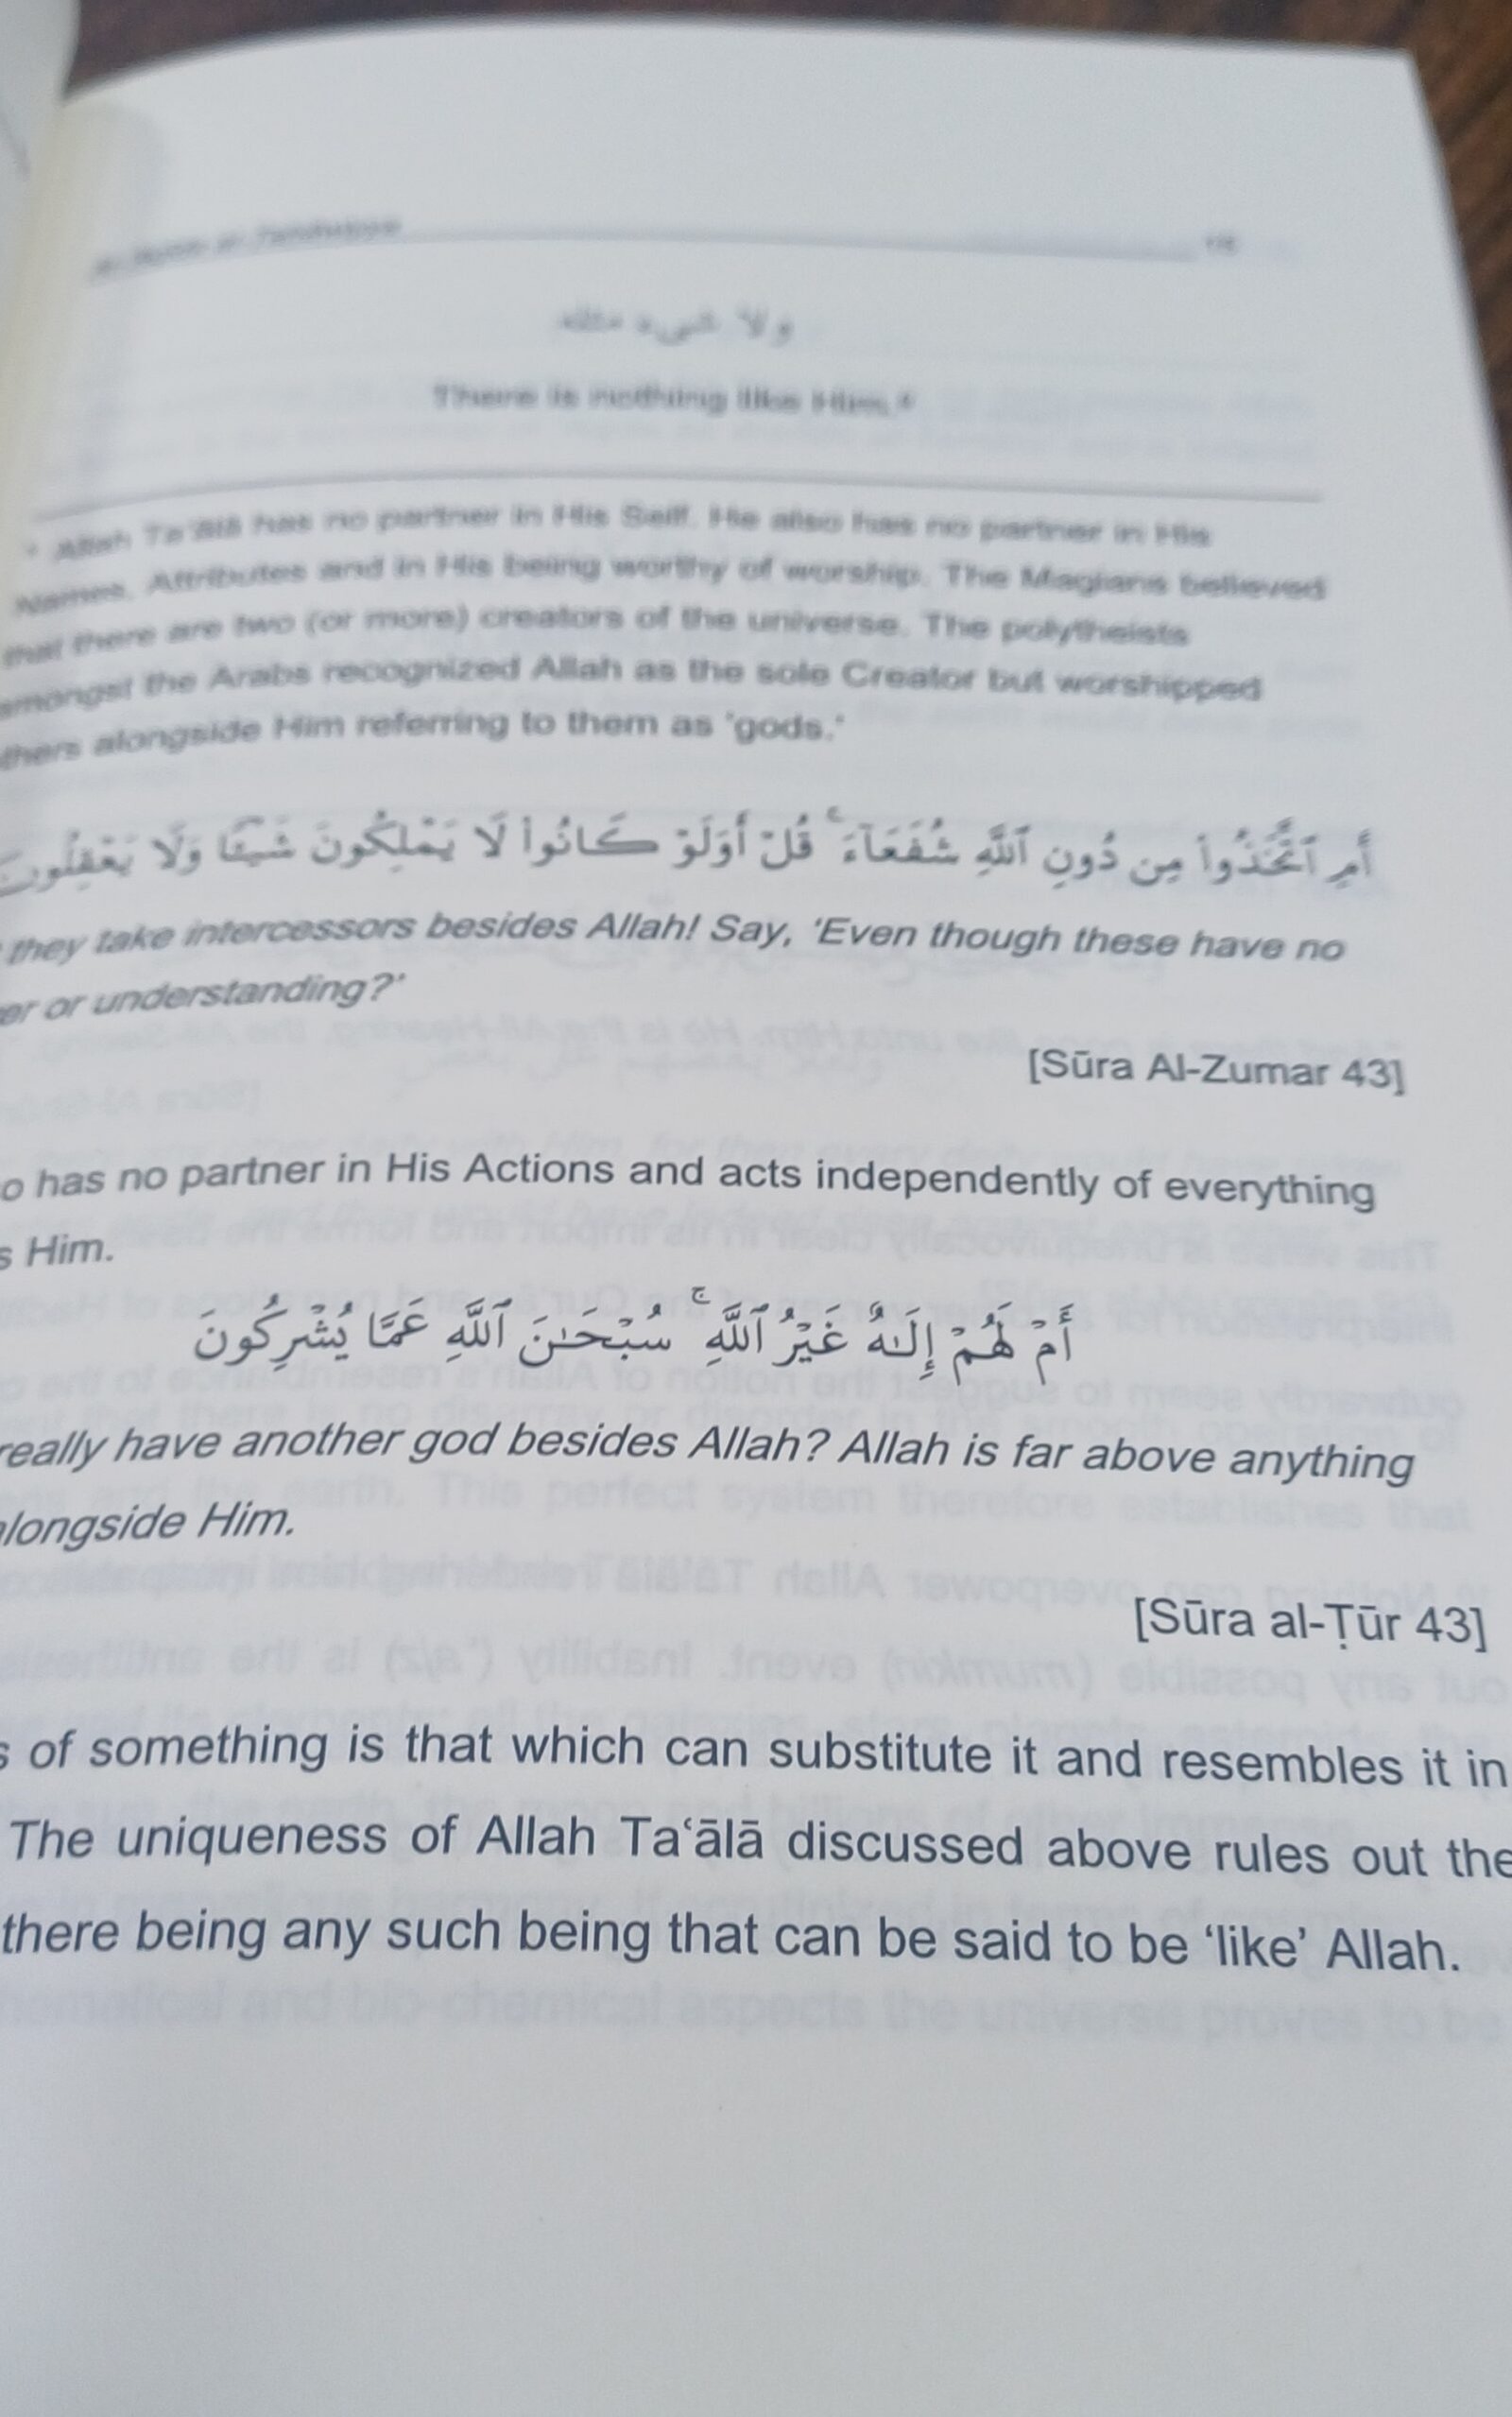 ولا شيء مثله
There is nothing like Him.
Allah Ta'ālā has no partner in His Self. He also has no partner in His
Names, Attributes and in His being worthy of worship. The Magians believed
that there are two (or more) creators of the universe. The polytheists
amongst the Arabs recognized Allah as the sole Creator but worshipped
thers alongside Him referring to them as 'gods.'
أَمِ ٱتَّخَذُوا۟ مِن دُونِ ٱللَّهِ شُفَعَآءَ ۚ قُلْ أَوَلَوْ كَانُوا۟ لَا يَمْلِكُونَ شَيْـًٔا وَلَا يَعْقِلُونَ
they take intercessors besides Allah! Say, 'Even though these have no
er or understanding?'
[Sūra Al-Zumar 43]
o has no partner in His Actions and acts independently of everything
s Him.
أَمْ لَهُمْ إِلَـٰهٌ غَيْرُ ٱللَّهِ ۚ سُبْحَـٰنَ ٱللَّهِ عَمَّا يُشْرِكُونَ
really have another god besides Allah? Allah is far above anything
alongside Him.
[Sūra al-Ṭūr 43]
s of something is that which can substitute it and resembles it in
The uniqueness of Allah Ta‘ālā discussed above rules out the
there being any such being that can be said to be ‘like’ Allah.